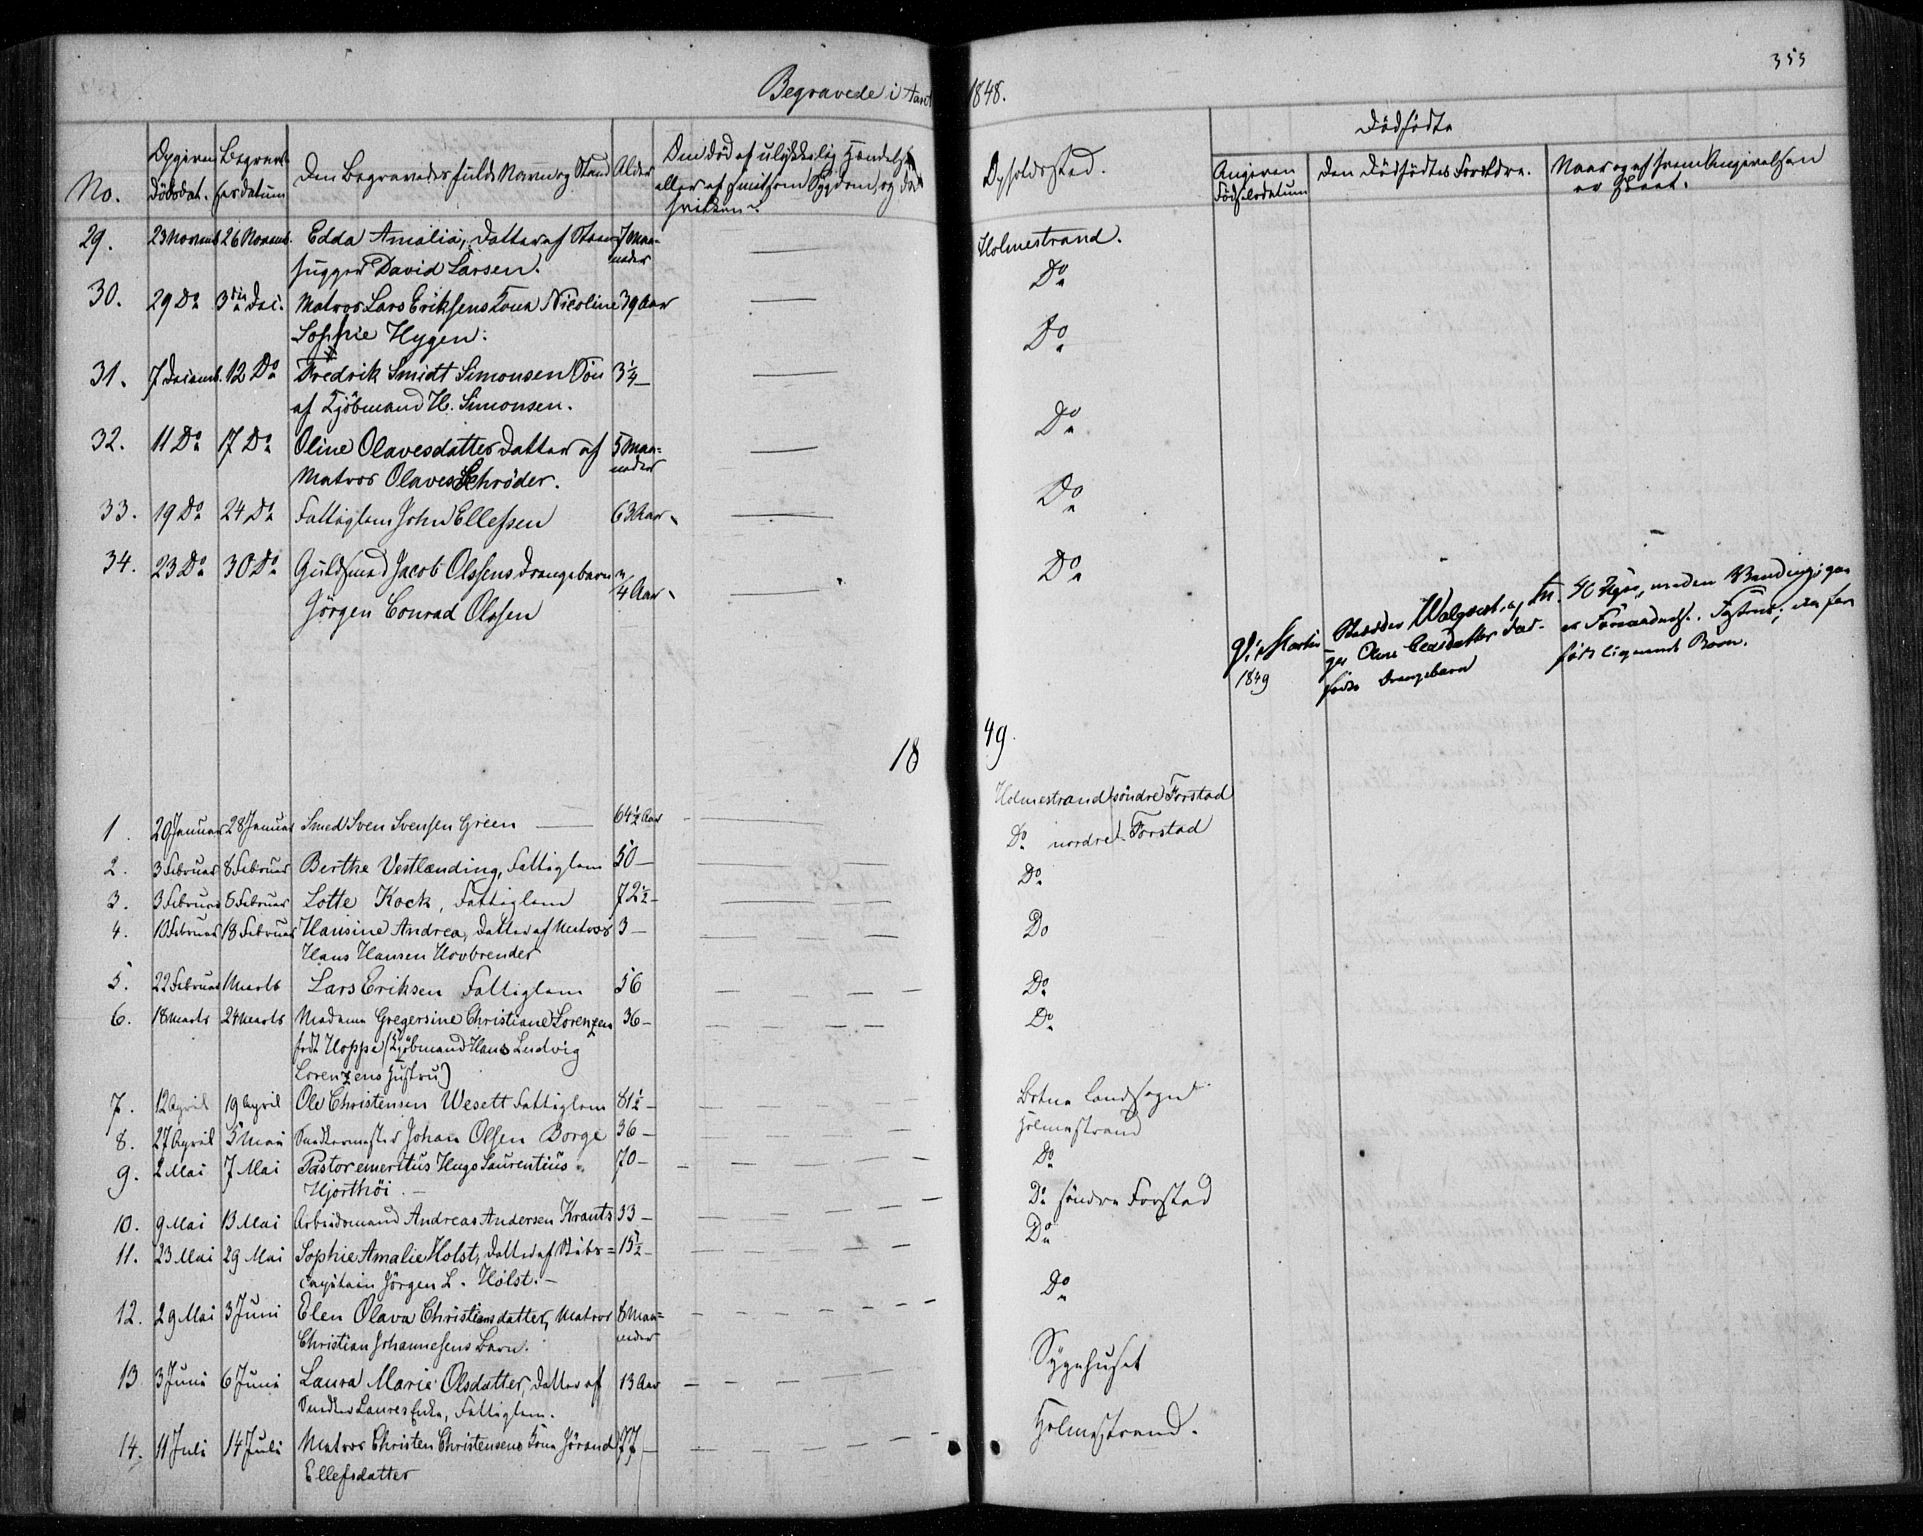 353
Begravede i Aaret 1848.
No. Opgiven Dödsdat. Begravelsesdatum Den Begravedes fulde Navn og Stand Alder Om Död af ulykkelig Hændelse eller af smitsom Sygdom, og da af hvilken. Opholdssted.
Dödfödte
Angiven Födselsdatum Den Dödfödtes Forældre. Naar og af hvem Angivelsen er skeet.
29. 23 Novemb. 26 Novemb. Edda Amalia, Datter af 7 Maa- Holmestrand.
hugger David Larsen. neder
30. 29 Do 3die Dec. Matros Lars Eriksens Kone Nicoline 39 Aar Do
Sophie Hygen.
31. 7 Decemb. 12 Do Fredrik Smidt Simonsen Sön 3¼ — Do
af Kjöbmand H. Simonsen.
32. 11 Do 17 Do Oline Olavesdatter Datter af 5 Maa- Do
Matros Olaves Schröder. neder
33. 19 Do 24 Do Fattiglem John Ellefsen 63 Aar Do
34. 23 Do 30 Do Guldsmed Jacob Olssens Drengebarn Do
Jörgen Conrad Olssen 4 Aar
9de Marts
1849
ger Oline
födte Drengebarn
född lignende Barn.
1849.
1. 20 Januar 28 Januar Smed Sven Svensen Green — 64½ Aar Holmestrand söndre Forstad
2. 3 Februar 8 Februar Berthe Vestlænding, Fattiglem 50 — Do nordre Forstad
3. 3 Februar 5 Februar Lotte Kock, Fattiglem 72½ — Do
4. 10 Februar 18 Februar Hansine Andrea, Datter af Matros 3 — Do
Hans Hansen Hovbrender
5. 22 Februar 1 Marts Lars Eriksen Fattiglem 56 Do
6. 18 Marts 24 Marts Madame Gregersine Christiane Lorenzen 36 — Do
födt Hoppe (Kjöbmand Hans Ludvig
Lorenzens Hustru)
7. 12 April 19 April Ole Christensen Wesett Fattiglem 81½ — Botne Landsogn
8. 27 April 5 Mai Snedkermester Johan Olsen Borge 36 — Holmestrand
9. 2 Mai 7 Mai Pastor emeritus Hugo Laurentius 70 — Do
Hjorthöi. —
10. 9 Mai 13 Mai Arbeidsmand Andreas Andersen Krants 33 — Do söndre Forstad
11. 23 Mai 29 Mai Sophie Amalie Holst, Datter af Skibs= 15½ — Do
capitain Jörgen L. Holst. —
12. 29 Mai 3 Juni Elen Olava Christiansdatter, Matros 8 Maa= Do
Christian Johannesens Barn. neder
13 3 Juni 6 Juni Laura Marie Olsdatter, Datter af 13 Aar Sygehuset
Snedker Laures Enke, Fattiglem.
14. 11 Juli 14 Juli Matros Christen Christensens Kone Jörand 77 — Holmestrand.
Ellefsdatter